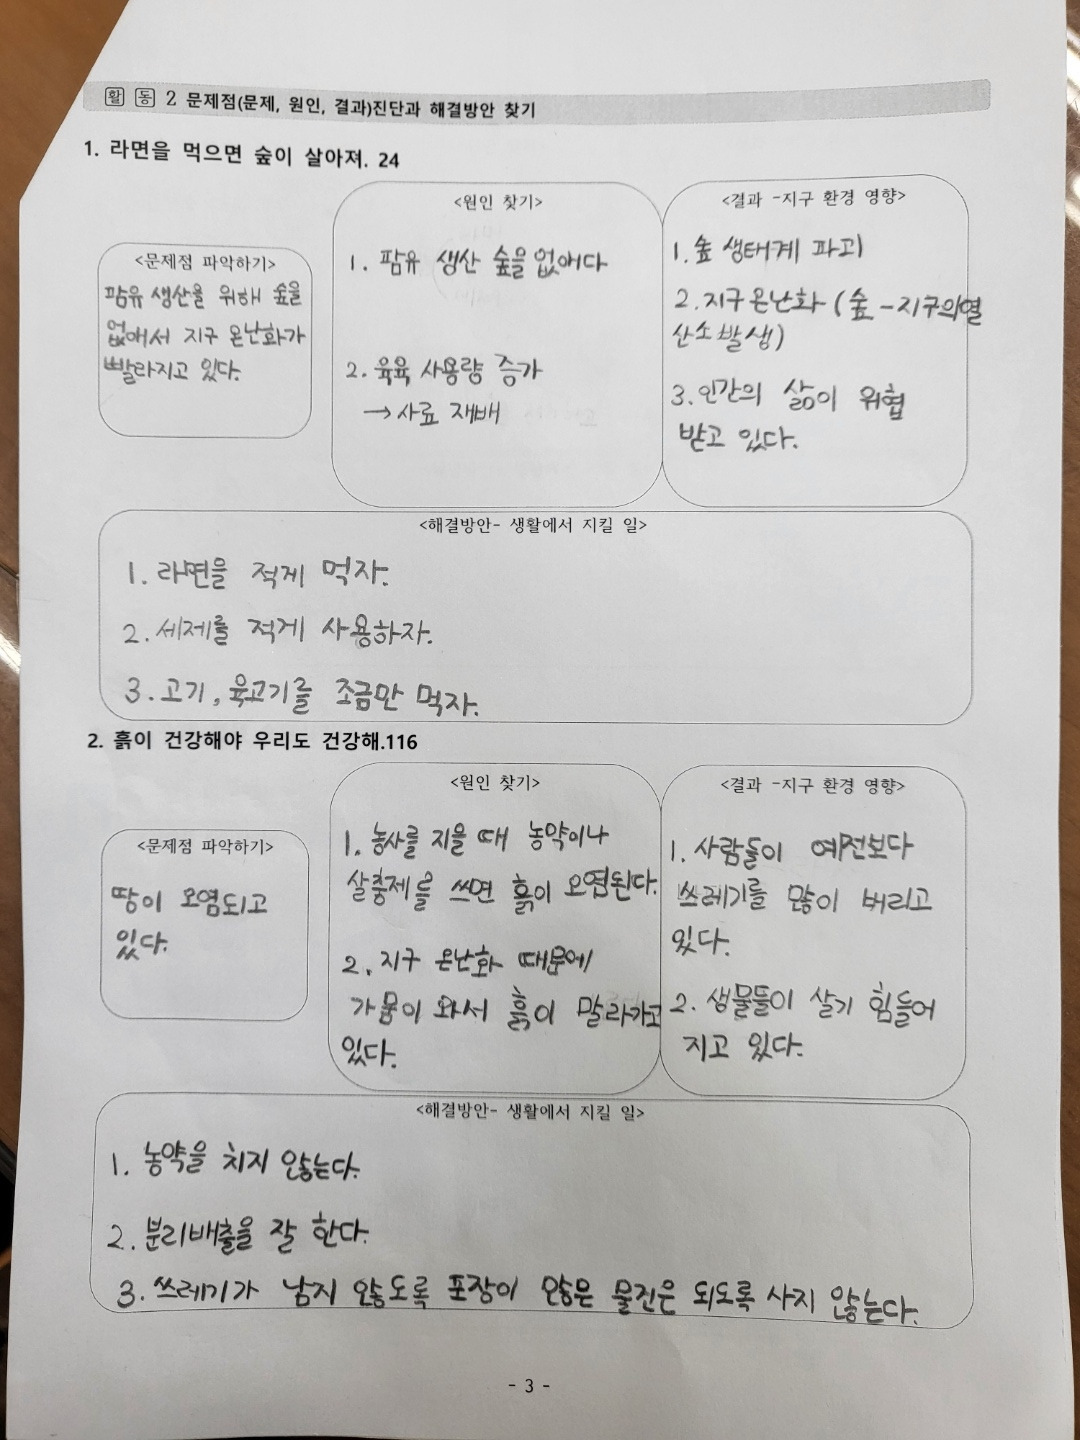 활 동 2 문제점(문제, 원인, 결과)진단과 해결방안 찾기
1. 라면을 먹으면 숲이 살아져. 24
<문제점 파악하기>
팜유 생산을 위해 숲을
없애서 지구 온난화가
빨라지고 있다.
<원인 찾기>
1. 팜유 생산 숲을 없애다
2. 육육 사용량 증가
→ 사료 재배
<결과 -지구 환경 영향>
1. 숲 생태계 파괴
2. 지구 온난화 (숲 - 지구의열
산소발생)
3. 인간의 삶이 위협
받고 있다.
<해결방안- 생활에서 지킬 일>
1. 라면을 적게 먹자.
2. 세제를 적게 사용하자.
3. 고기, 육고기를 조금만 먹자.
2. 흙이 건강해야 우리도 건강해.116
<문제점 파악하기>
땅이 오염되고
있다.
<원인 찾기>
1. 농사를 지을 때 농약이나
살충제를 쓰면 흙이 오염된다.
2. 지구 온난화 때문에
가뭄이 와서 흙이 말라가고
있다.
<결과 -지구 환경 영향>
1. 사람들이 예전보다
쓰레기를 많이 버리고
있다.
2. 생물들이 살기 힘들어
지고 있다.
<해결방안- 생활에서 지킬 일>
1. 농약을 치지 않는다.
2. 분리배출을 잘 한다.
3. 쓰레기가 남지 않도록 포장이 않은 물건은 되도록 사지 않는다.
- 3 -